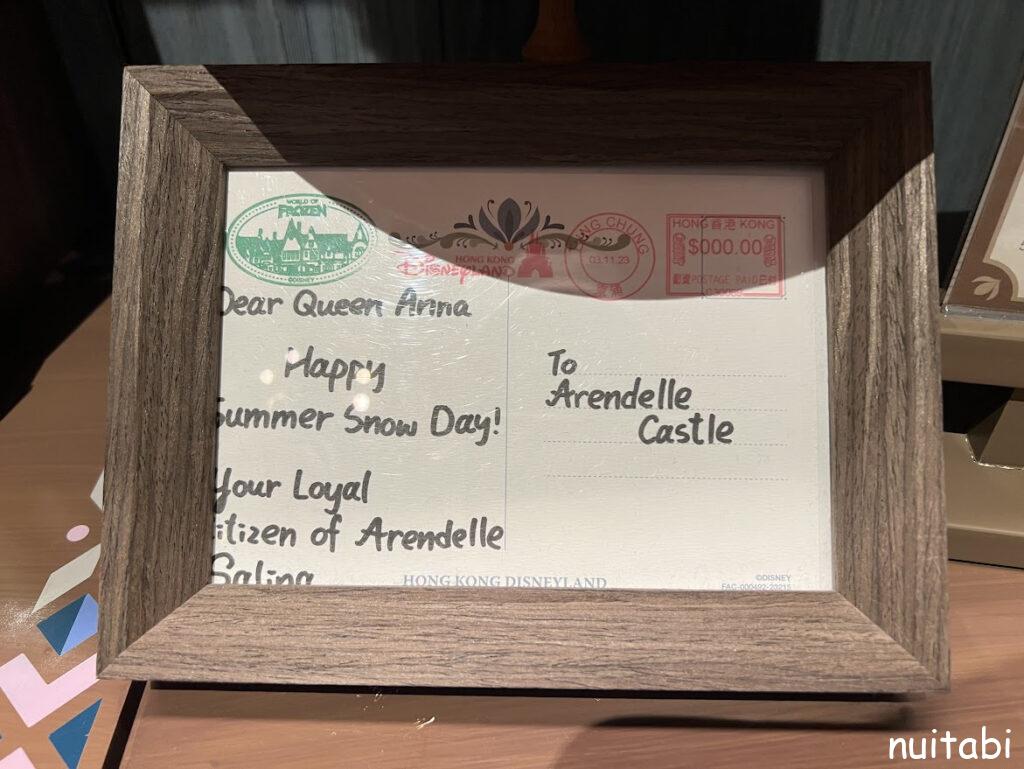 WORLD OF
FROZEN
©DISNEY
HONG KONG
DISNEYLAND
NG CHUNG
03.11.23
HONG 香港 KONG
$000.00
POSTAGE PAID
Dear Queen Anna
Happy
Summer Snow Day!
Your Loyal
itizen of Arendelle
Salina
To
Arendelle
Castle
HONG KONG DISNEYLAND
©DISNEY
nuitabi